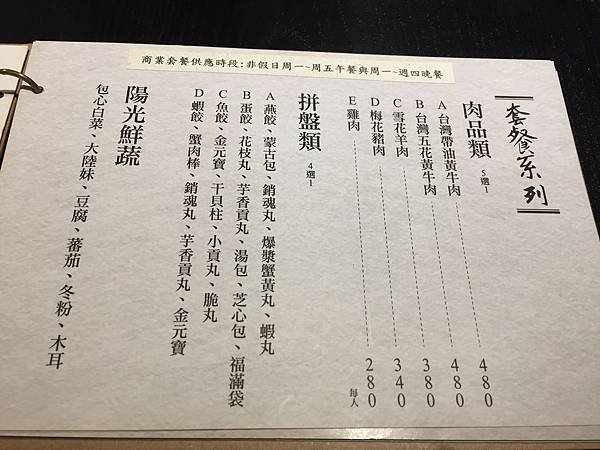 商業套餐供應時段:非假日周一~周五午餐與周一~週四晚餐
套餐系列
肉品類 5選1
A 台灣帶油黃牛肉 480
B 台灣五花黃牛肉 480
C 雪花羊肉 380
D 梅花豬肉 340
E 雞肉 280
每人
拼盤類 4選1
A 燕餃、蒙古包、銷魂丸、爆漿蟹黃丸、蝦丸
B 蛋餃、花枝丸、芋香貢丸、湯包、芝心包、福滿袋
C 魚餃、金元寶、干貝柱、小貢丸、脆丸
D 蝦餃、蟹肉棒、銷魂丸、芋香貢丸、金元寶
陽光鮮蔬
包心白菜、大陸妹、豆腐、蕃茄、冬粉、木耳